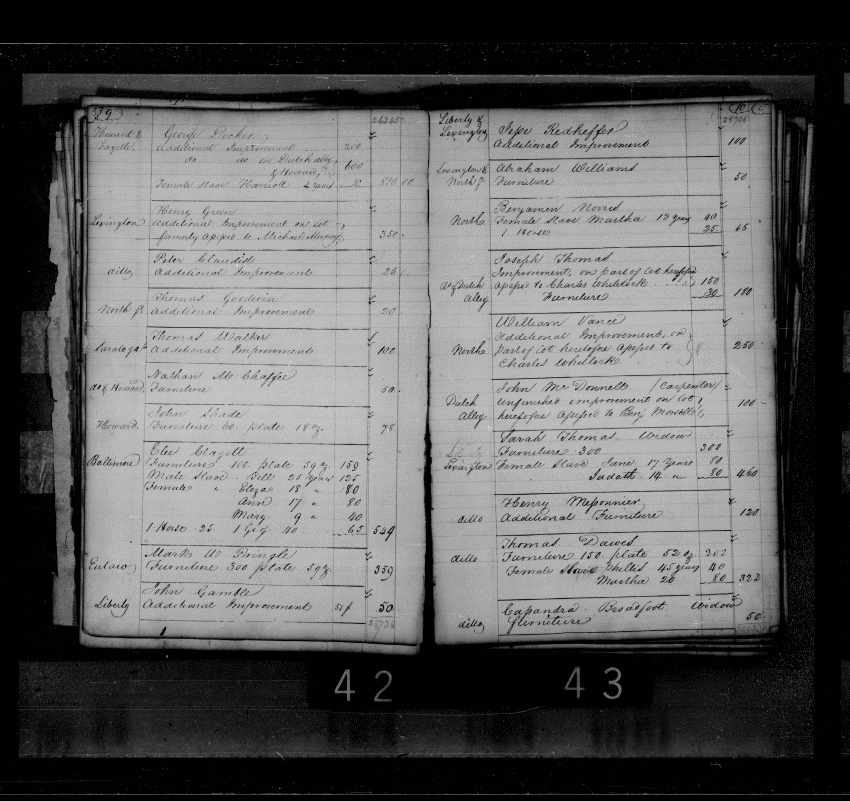 Howard & George Decker
Additional Improvement 200
do do on Dutch alley & Howard St 600
Female Slave Harriott 4 years 10 810 00
Henry Green
Lexington Additional Improvement on lot
formerly assess'd to Michael 350
Peter Claudist
ditto Additional Improvement 25
Thomas Goodwin
North St Additional Improvement 20
Thomas Walker
Saratoga Additional Improvement 100
Nathan Mc Chaffee
do & Howard Furniture 50
John Shade
Howard Furniture 60 plate 18 oz 78
Elie Clagett
Baltimore Furniture 100 plate 59 oz 159
Male Slave Bill 25 years 125
Female " Eliza 18 " 80
Ann 17 " 80
Mary 9 " 40
1 Horse 25 1 Gig 40 65 549
Mark W Pringle
Eutaw Furniture 300 plate 59 oz 359
John Gamble
Liberty Additional Improvement 50
26736
10
26736
Liberty &
Lexington Jesse Redheffer
Additional Improvement 100
Lexington & Abraham Williams
North St Furniture 50
Benjamin Norris
North Female Slave Martha 13 years 40
1 Horse 25 65
Joseph Thomas
Improvement, on part of lot heretofore
do & Dutch assess'd to Charles Whitlock 150
Alley Furniture 30 180
William Vance
Additional Improvement, on
North part of lot heretofore assess'd to 250
Charles Whitlock
John McDonnell (Carpenter)
Dutch unfinished improvement on lot 100
Alley heretofore assess'd to Benj
Sarah Thomas Widow
Furniture 300 300
Lexington Female Slave Jane 17 Years 80
Judath 14 " 80 460
Henry Messonnier
ditto Additional Furniture 120
Thomas Dawes
ditto Furniture 150 plate 52 oz 202
Female Slave Phillis 45 years 40
Martha 20 80 322
Cassandra Broadfoot Widow
ditto Furniture 50
42
43